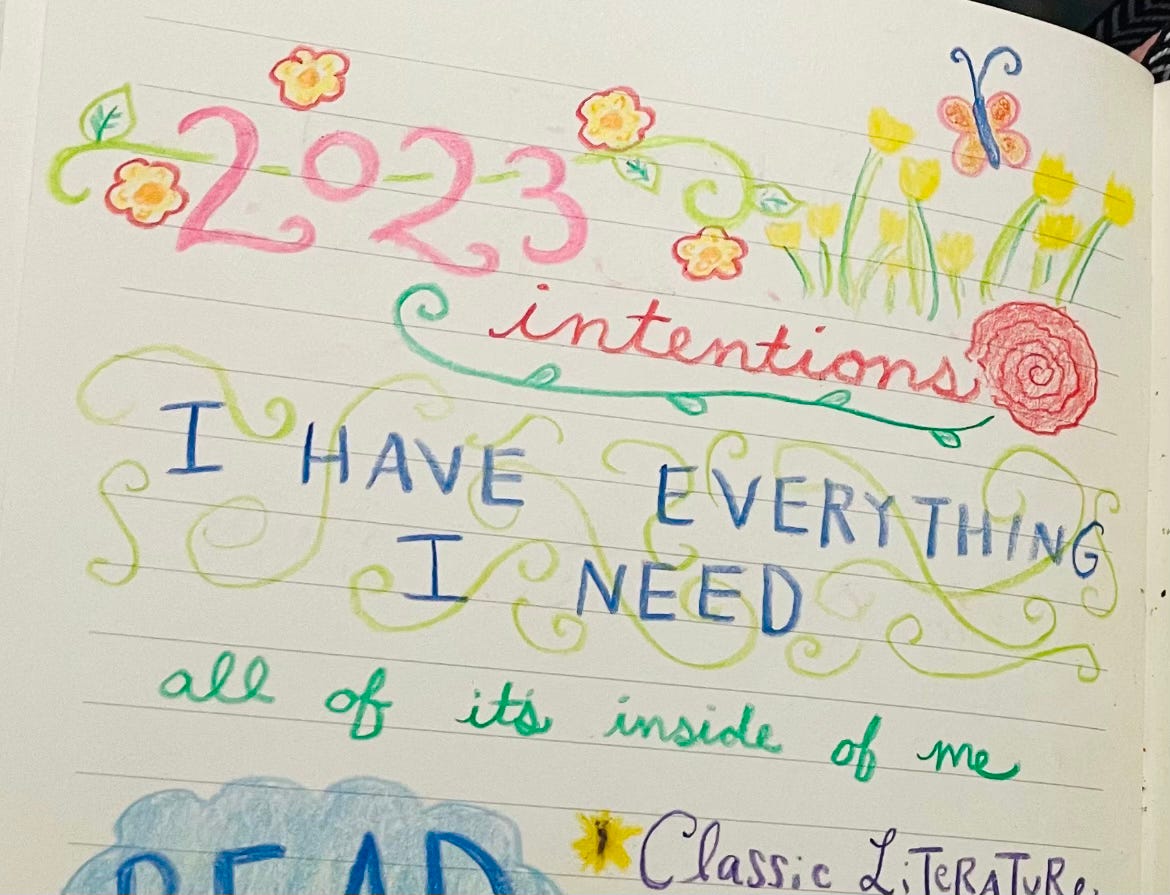 2023
intentions
I HAVE EVERYTHING
I NEED
all of it's inside of me
READ
Classic LiTERATURe